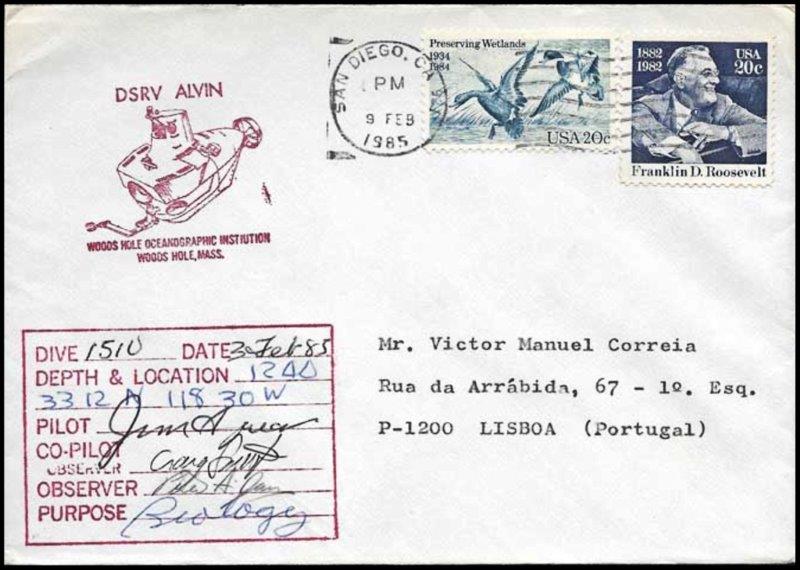 DSRV ALVIN
WOODS HOLE OCEANOGRAPHIC INSTIUTION
WOODS HOLE, MASS.
SAN DIEGO, CA
PM
9 FEB
1985
Preserving Wetlands
1934
1984
USA 20c
1882
1982
USA
20c
Franklin D. Roosevelt
DIVE 1510 DATE 3 Feb 85
DEPTH & LOCATION 1240
33 12 N 118 30 W
PILOT Jim
CO-PILOT
OBSERVER Craig
OBSERVER Peter
PURPOSE Biology
Mr. Victor Manuel Correia
Rua da Arrábida, 67 - 1º. Esq.
P-1200 LISBOA (Portugal)